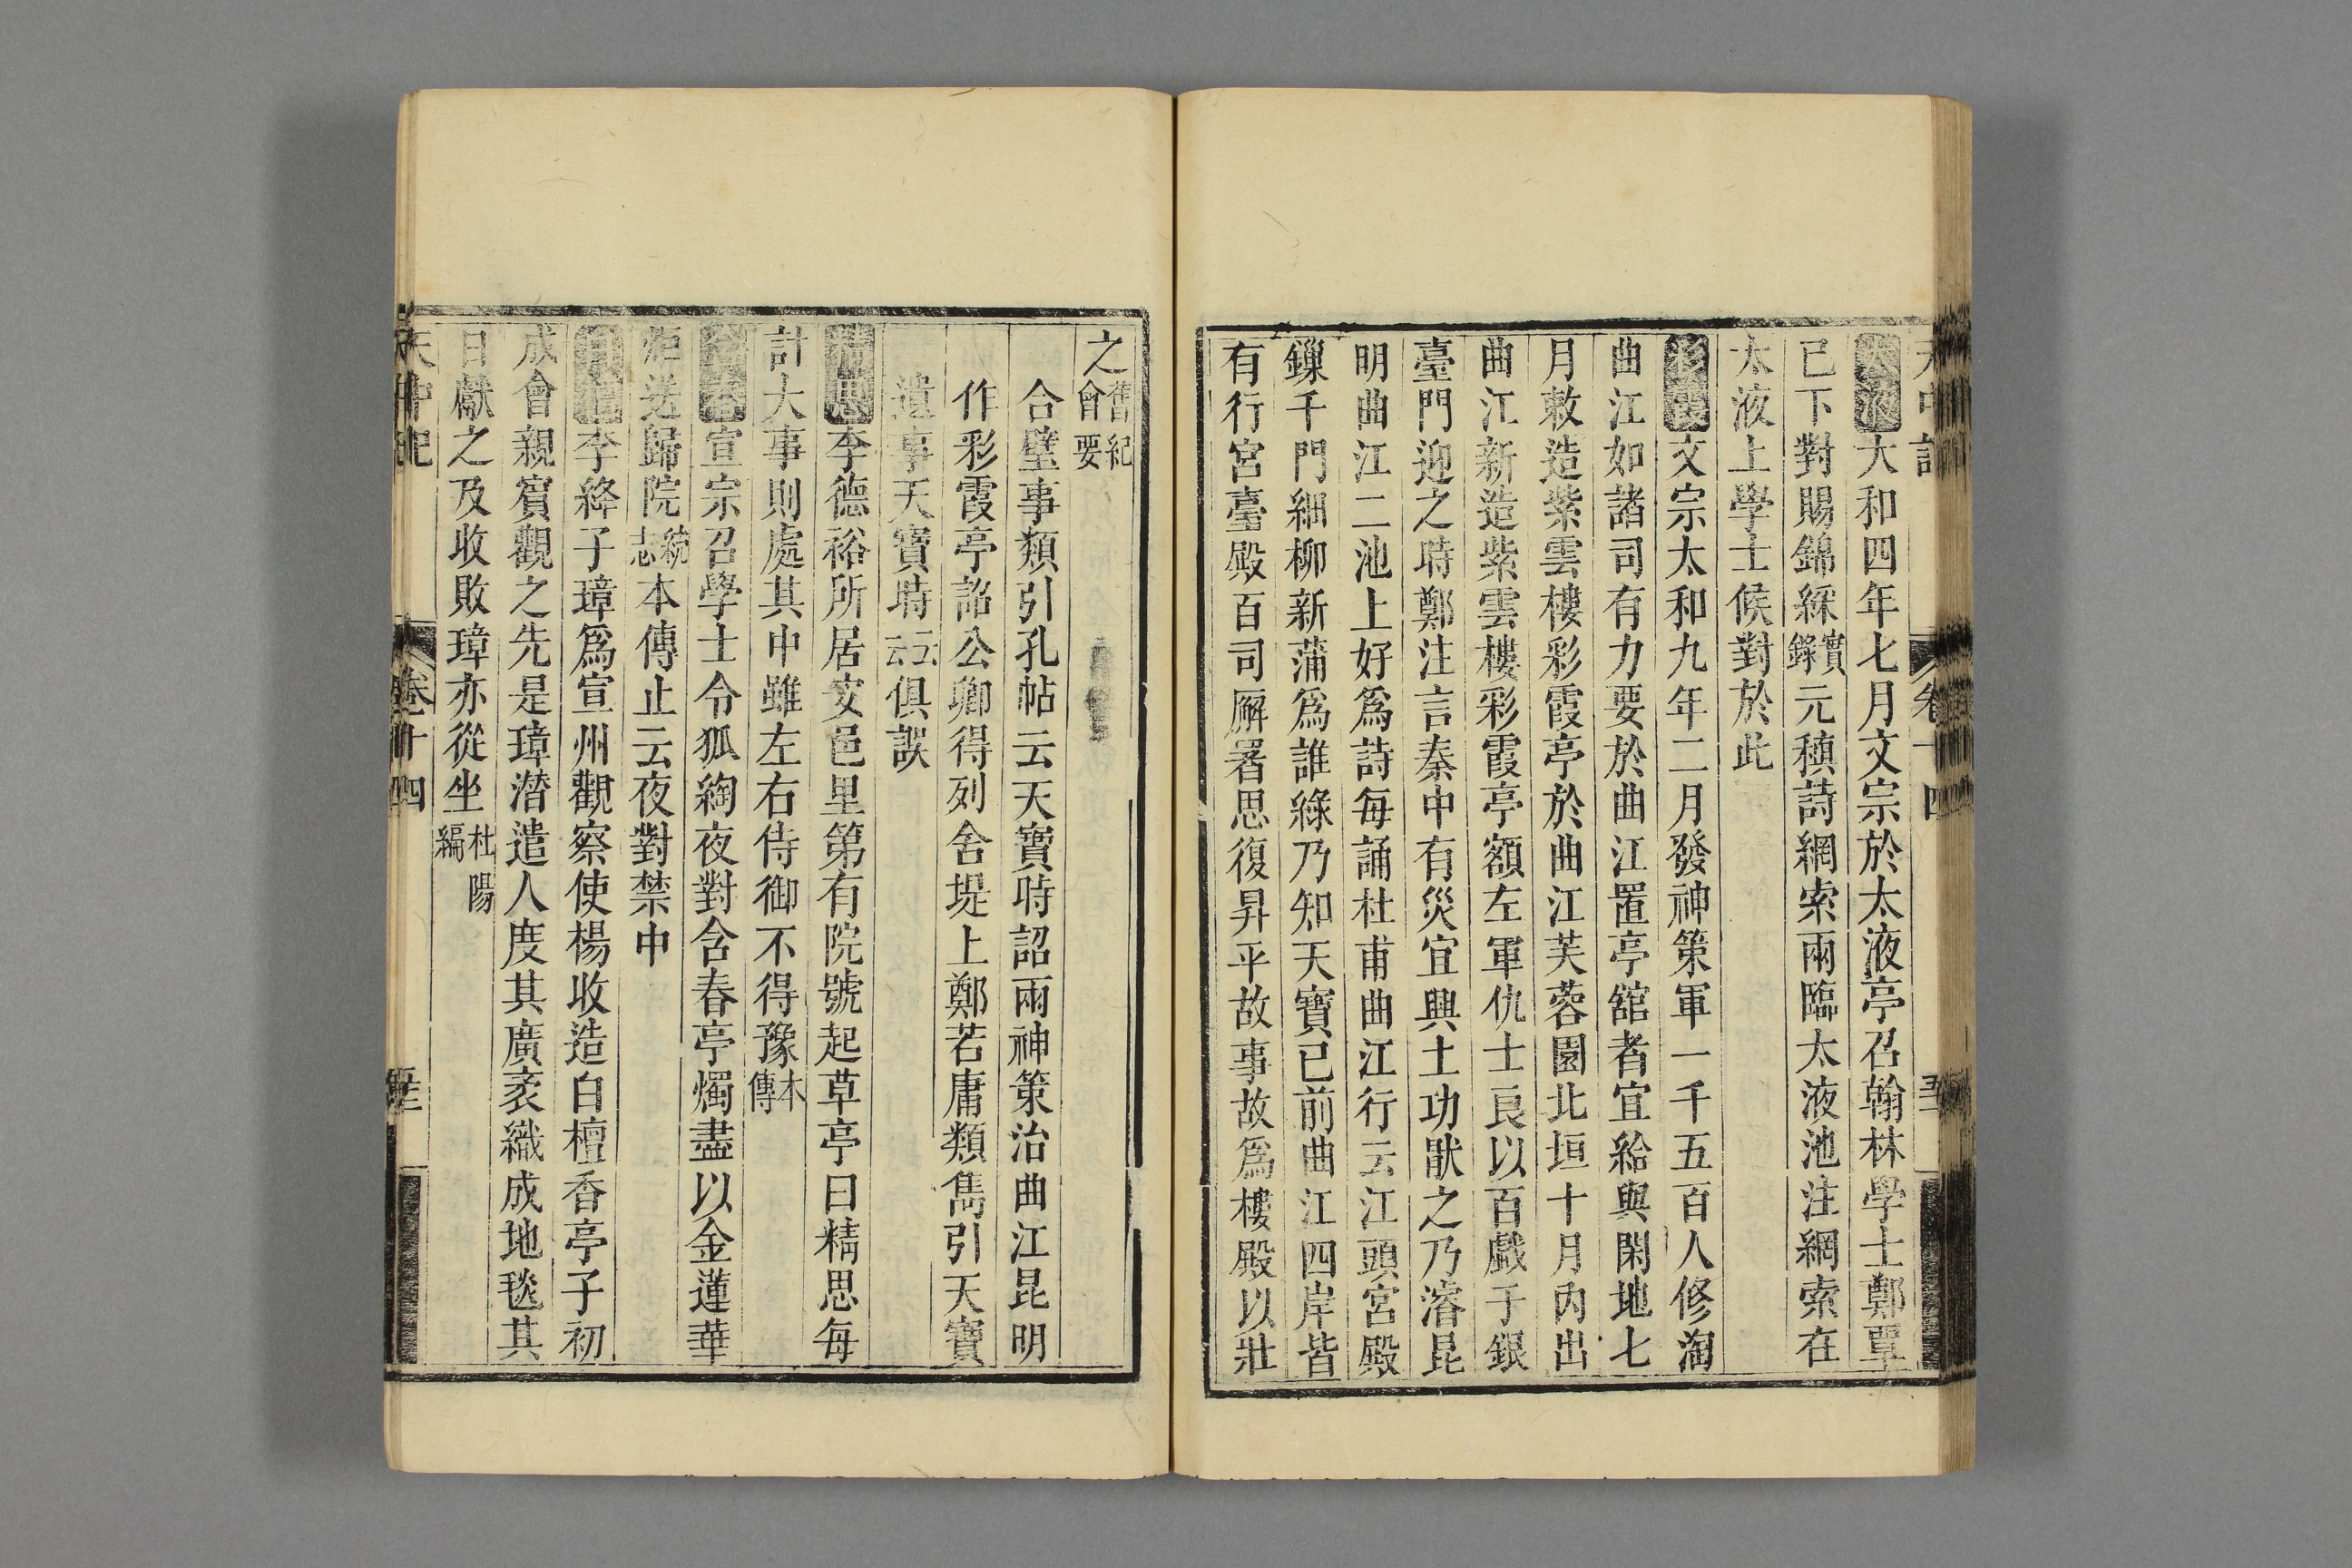 太液大和四年七月文宗於太液亭召翰林學士鄭覃
已下對賜錦綵實錄元稹詩網索兩臨太液池注網索在
太液上學士候對於此
彩霞文宗太和九年二月發神策軍一千五百人修淘
曲江如諸司有力要於曲江置亭舘者宜給與閑地七
月敕造紫雲樓彩霞亭於曲江芙蓉園北垣十月內出
曲江新造紫雲樓彩霞亭額左軍仇士良以百戲于銀
臺門迎之時鄭注言秦中有災宜興土功猒之乃濬昆
明曲江二池上好爲詩每誦杜甫曲江行云江頭宮殿
鏁千門細柳新蒲爲誰綠乃知天寶已前曲江四岸皆
有行宮臺殿百司廨署思復昇平故事故爲樓殿以壯
之舊紀會要
合璧事類引孔帖云天寶時詔兩神策治曲江昆明
作彩霞亭詔公卿得列舍堤上鄭若庸類雋引天寶
遺事天寶時云云俱誤
精思李德裕所居安邑里第有院號起草亭曰精思每
計大事則處其中雖左右侍御不得豫本傳
含春宣宗召學士令狐綯夜對含春亭燭盡以金蓮華
炬送歸院統志本傳止云夜對禁中
白檀李絳子璋爲宣州觀察使楊收造白檀香亭子初
成會親賓觀之先是璋潛遣人度其廣袤織成地毯其
日獻之及收敗璋亦從坐杜陽編
天中記 卷十四